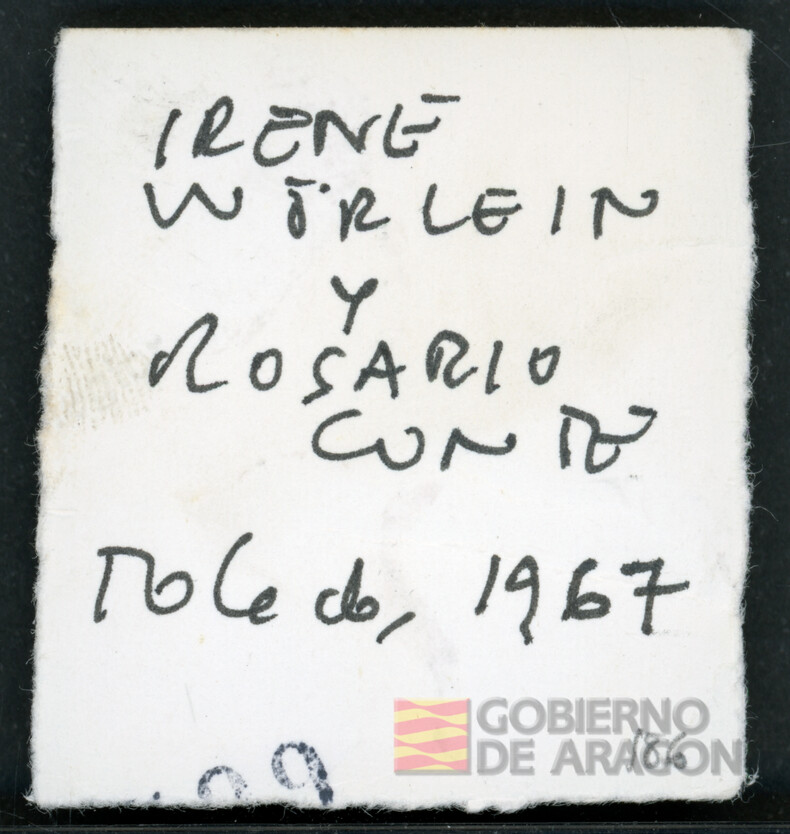 IRENE
WÖRLEIN
Y
ROSARIO
CONTE
Toledo, 1967
GOBIERNO
DE ARAGON
186